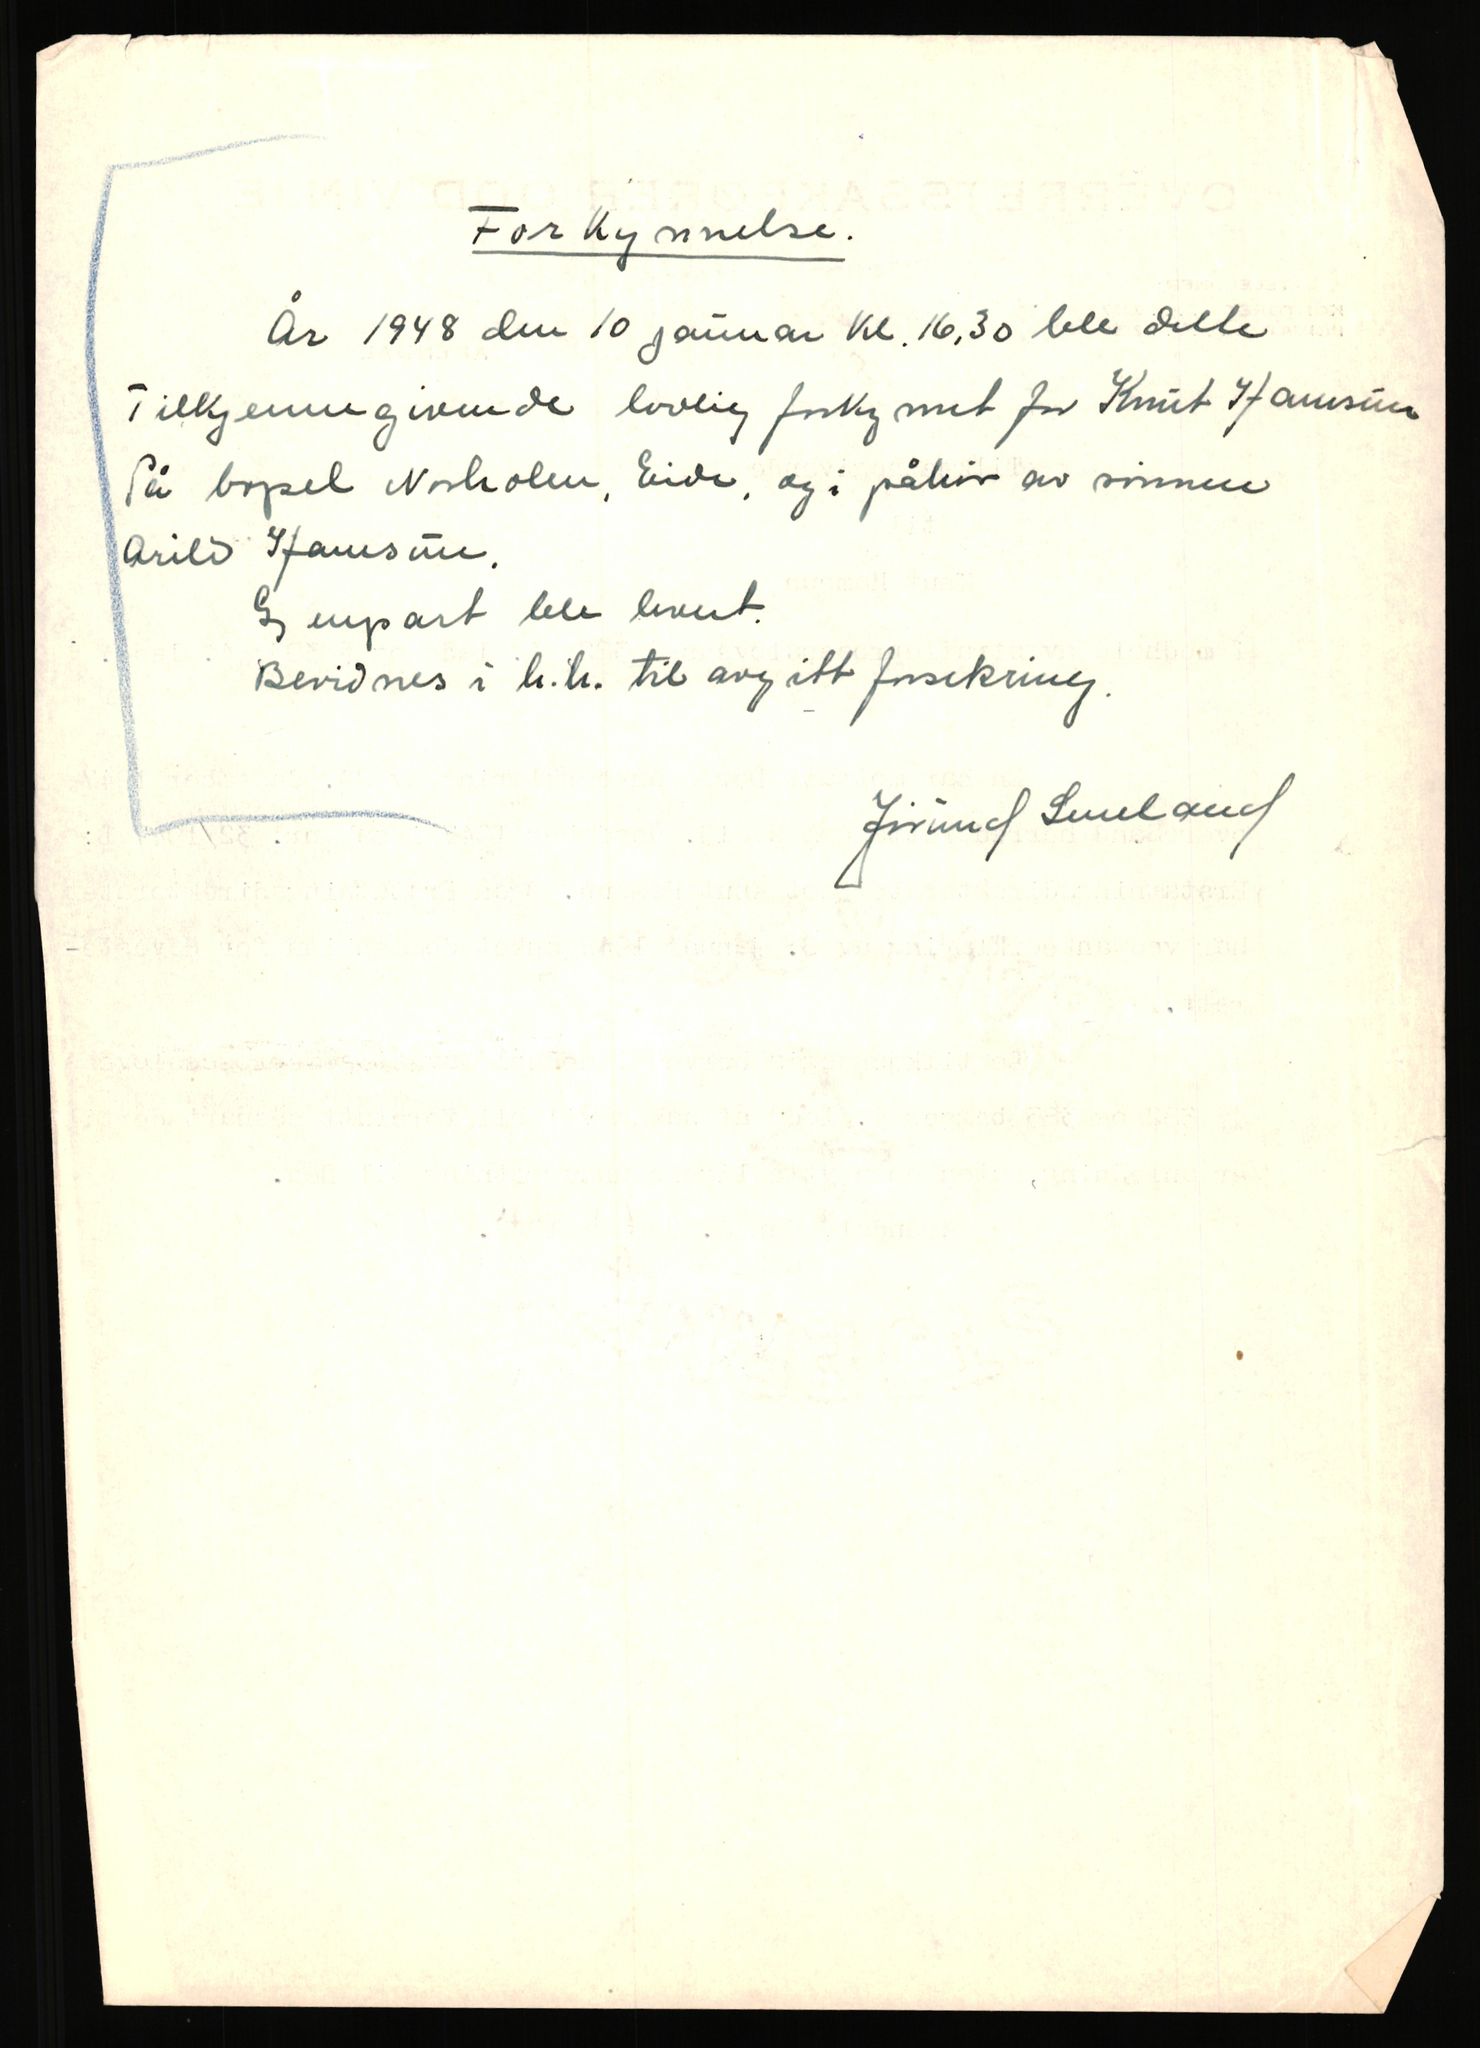 Forkynnelse.
År 1948 den 10 januar kl. 16,30 ble dette
Tilkjennegivende lovlig forkynnt for Knut Hamsun
På bopel Nørholm, Eide, og i påhør av sønnen
Arild Hamsun.
Gjenpart ble levert.
Bevidnes i h.h. til avgitt forsekring.
Smeland